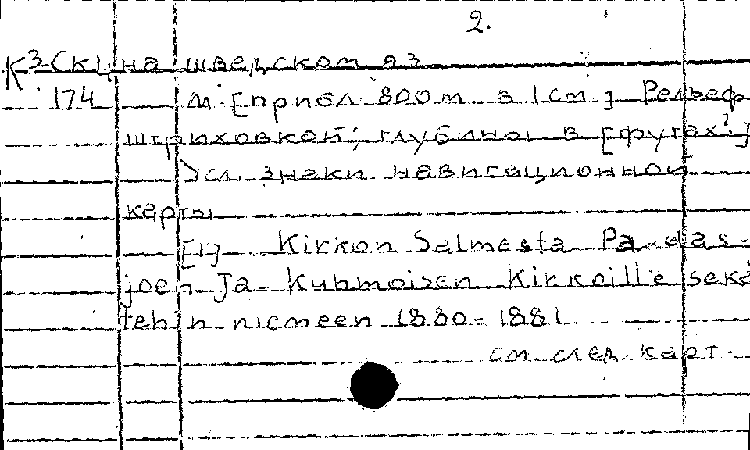 2.
К3-Ск1 на шведском яз
174 М [прибл 800 m в 1 см.] Рельеф
штриховкой; глубины в [футах?]
Усл. знаки навигационной
карты
[1] Kirkon Salmesta
joen Ja Kuhmoisen Kirkoille sekä
tehin niemeen 1880-1881
см след карт